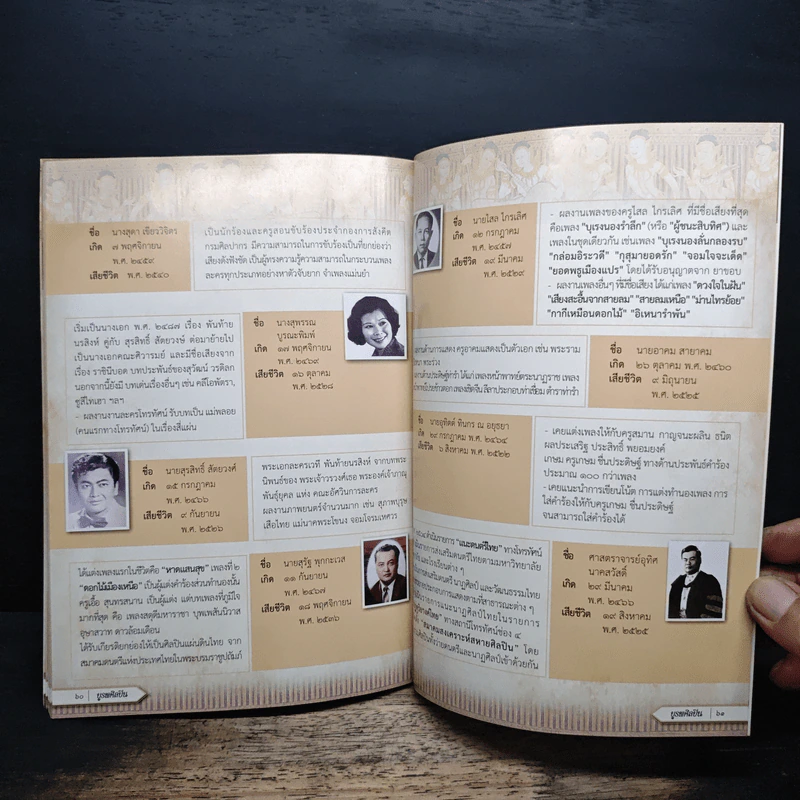 ชื่อ นางสุดา เขียววิจิตร
เกิด ๗ พฤศจิกายน
พ.ศ. ๒๔๕๙
เสียชีวิต พ.ศ. ๒๕๔๐
เป็นนักร้องและครูสอนขับร้องประจำกองการสังคีต
กรมศิลปากร มีความสามารถในการขับร้องเป็นที่ยกย่องว่า
เสียงดังฟังชัด เป็นผู้ทรงความรู้ความสามารถในกระบวนเพลง
ละครทุกประเภทอย่างหาตัวจับยาก จำเพลงแม่นยำ
เริ่มเป็นนางเอก พ.ศ. ๒๔๘๗ เรื่อง พันท้าย
นรสิงห์ คู่กับ สุรสิทธิ์ สัตยวงษ์ ต่อมาย้ายไป
เป็นนางเอกคณะศิวารมย์ และมีชื่อเสียงจาก
เรื่อง ราชินีบอด บทประพันธ์ของสุวัฒน์ วรดิลก
นอกจากนี้ยังมี บทเด่นเรื่องอื่นๆ เช่น คลีโอพัตรา,
ซูสีไทเฮา ฯลฯ
- ผลงานงานละครโทรทัศน์ รับบทเป็น แม่พลอย
(คนแรกทางโทรทัศน์) ในเรื่องสี่แผ่น
ชื่อ นางสุพรรณ
บูรณะพิมพ์
เกิด ๑๗ พฤศจิกายน
พ.ศ. ๒๔๖๙
เสียชีวิต ๑๖ ตุลาคม
พ.ศ. ๒๕๒๘
ชื่อ นายสุรสิทธิ์ สัตยวงศ์
เกิด ๑๕ กรกฎาคม
พ.ศ. ๒๔๖๖
เสียชีวิต ๙ กันยายน
พ.ศ. ๒๕๒๖
พระเอกละครเวที พันท้ายนรสิงห์ จากบทพระ
นิพนธ์ของ พระเจ้าวรวงศ์เธอ พระองค์เจ้าภาณุ
พันธุ์ยุคล แห่ง คณะอัศวินการละคร
ผลงานภาพยนตร์จำนวนมาก เช่น สุภาพบุรุษ
เสือไทย แม่นาคพระโขนง จอมโจรมเหศวร
ได้แต่งเพลงแรกในชีวิตคือ "หาดแสนสุข" เพลงที่ ๒
"ดอกไม้เมืองเหนือ" เป็นผู้แต่งคำร้องส่วนทำนองนั้น
ครูเอื้อ สุนทรสนาน เป็นผู้แต่ง แต่บทเพลงที่ภูมิใจ
มากที่สุด คือ เพลงสดุดีมหาราชา บุพเพสันนิวาส
อุษาสวาท ดาวล้อมเดือน
ได้รับเกียรติยกย่องให้เป็นศิลปินแผ่นดินไทย จาก
สมาคมดนตรีแห่งประเทศไทยในพระบรมราชูปถัมภ์
ชื่อ นายสุรัฐ พุกกะเวส
เกิด ๑๑ กันยายน
พ.ศ. ๒๔๖๗
เสียชีวิต ๑๘ พฤศจิกายน
พ.ศ. ๒๕๓๖
๖๐ บูรพศิลปิน
ชื่อ นายไสล ไกรเลิศ
เกิด ๑๒ กรกฎาคม
พ.ศ. ๒๔๕๗
เสียชีวิต ๑๙ มีนาคม
พ.ศ. ๒๕๒๙
- ผลงานเพลงของครูไสล ไกรเลิศ ที่มีชื่อเสียงที่สุด
คือเพลง "บุเรงนองรำลึก" (หรือ "ผู้ชนะสิบทิศ") และ
เพลงในชุดเดียวกัน เช่นเพลง "บุเรงนองลั่นกลองรบ"
"กล่อมอิระวดี" "กุสุมายอดรัก" "จอมใจจะเด็ด"
"ยอดพธูเมืองแปร" โดยได้รับอนุญาตจาก ยาขอบ
- ผลงานเพลงอื่นๆ ที่มีชื่อเสียง ได้แก่เพลง "ดวงใจในฝัน"
"เสียงสะอื้นจากสายลม" "สายลมเหนือ" "ม่านไทรย้อย"
"กากีเหมือนดอกไม้" "อิเหนารำพัน"
งานด้านการแสดง ครูอาคมแสดงเป็นตัวเอก เช่น พระราม
พระร่วง
งานด้านประดิษฐ์ท่ารำ ได้แก่ เพลงหน้าพาทย์ตระนาฏราช เพลง
ชื่อ นายอาคม สายาคม
เกิด ๒๖ ตุลาคม พ.ศ. ๒๔๖๐
เสียชีวิต ๙ มิถุนายน
พ.ศ. ๒๕๒๕
ชื่อ นายอุทิตต์ ทินกร ณ อยุธยา
เกิด ๒๙ กรกฎาคม พ.ศ. ๒๔๖๔
๖ สิงหาคม พ.ศ. ๒๕๒๒
- เคยแต่งเพลงให้กับครูสมาน กาญจนะผลิน ธนิต
ผลประเสริฐ ประสิทธิ์ พยอมยงค์
เกษม ครูเกษม ชื่นประดิษฐ์ ทางด้านประพันธ์คำร้อง
ประมาณ ๑๐๐ กว่าเพลง
- เคยแนะนำการเขียนโน้ต การแต่งทำนองเพลง การ
ใส่คำร้องให้กับครูเกษม ชื่นประดิษฐ์
จนสามารถใส่คำร้องได้
"แนะดนตรีไทย" ทางโทรทัศน์
รายการส่งเสริมดนตรีไทยตามมหาวิทยาลัย
และโรงเรียนต่าง ๆ
ดนตรี นาฏศิลป์ และวัฒนธรรมไทย
ประกอบการแสดงตามที่สาธารณะต่าง ๆ
รายการแนะนำนาฏศิลป์ไทยในรายการ
ทางสถานีโทรทัศน์ช่อง ๔
"สมาคมสงเคราะห์สหายศิลปิน" โดย
ศิลปินทั้งวายดนตรีและนาฏศิลป์เข้าด้วยกัน
ชื่อ ศาสตราจารย์อุทิศ
นาคสวัสดิ์
เกิด ๒๙ มีนาคม
พ.ศ. ๒๔๖๖
เสียชีวิต ๑๙ สิงหาคม
พ.ศ. ๒๕๒๕
บูรพศิลปิน ๖๑